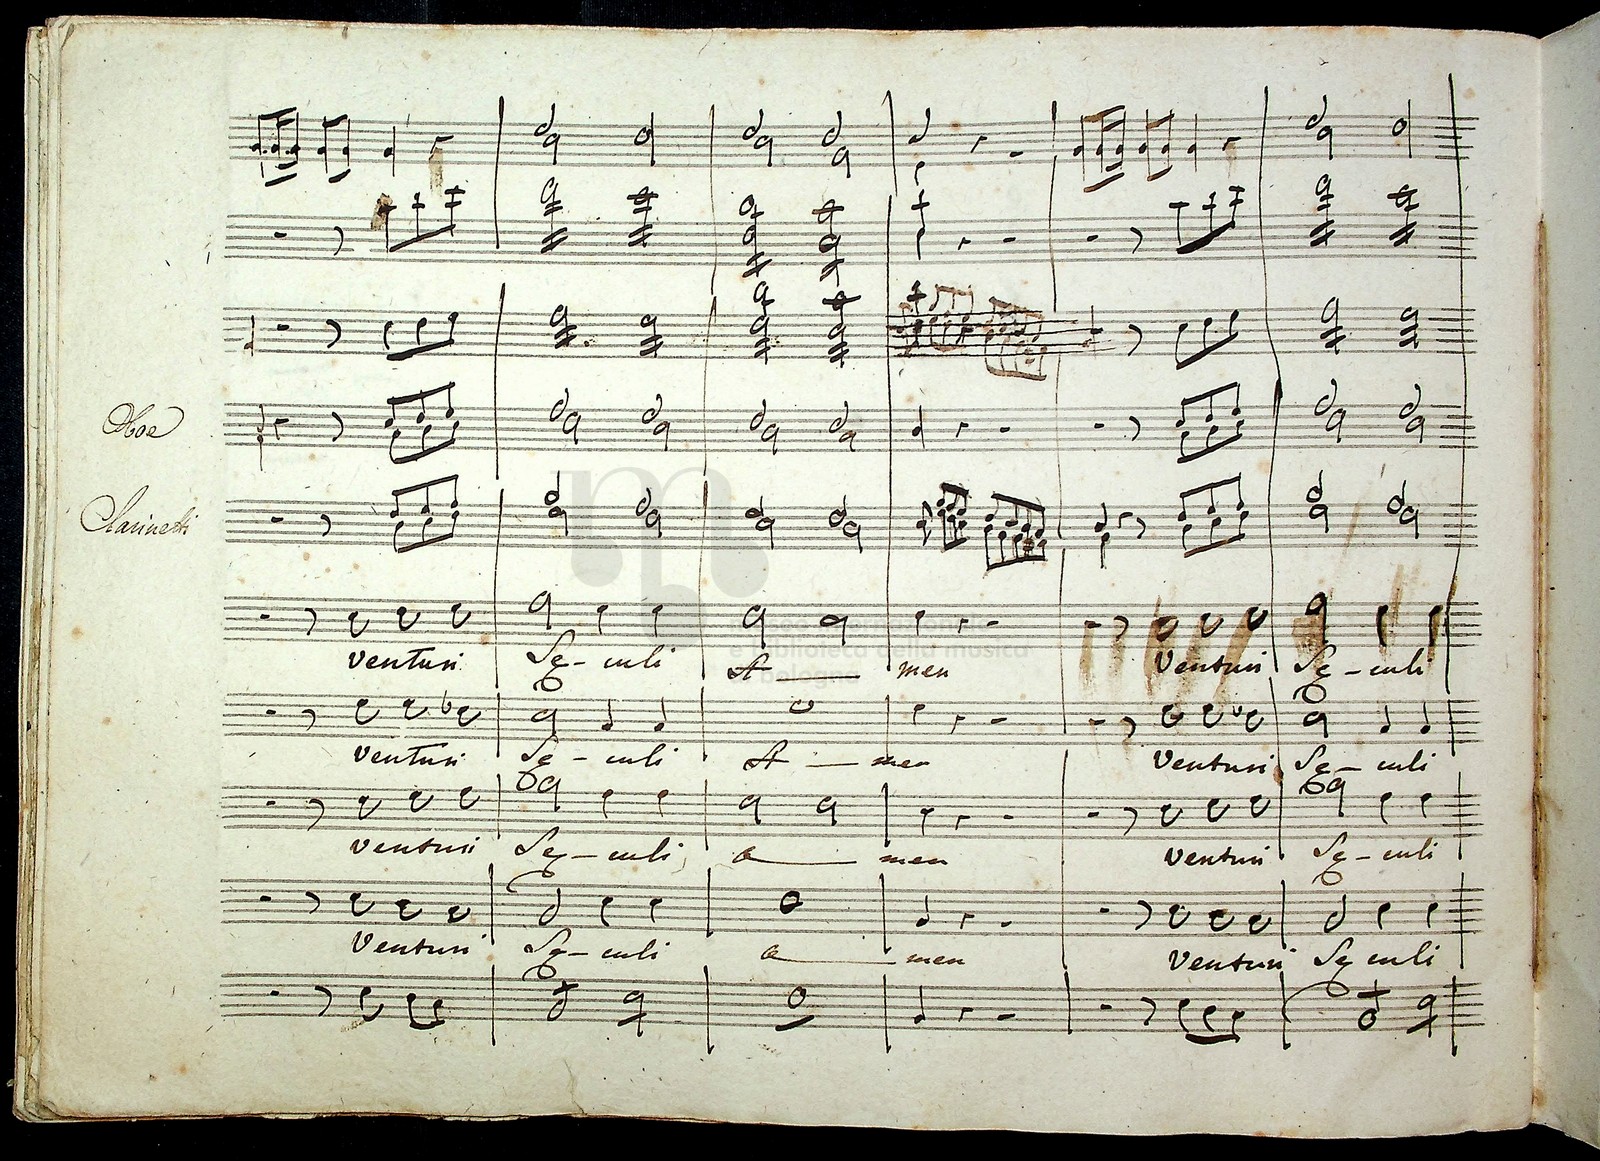 Oboe
Clarinetti
museo internazionale
e biblioteca della musica
bologna
venturi Se - culi A men venturi Se - culi
venturi Se - culi A - men venturi Se - culi
venturi Se - culi a men venturi Se - culi
venturi Se - culi a men venturi Se culi